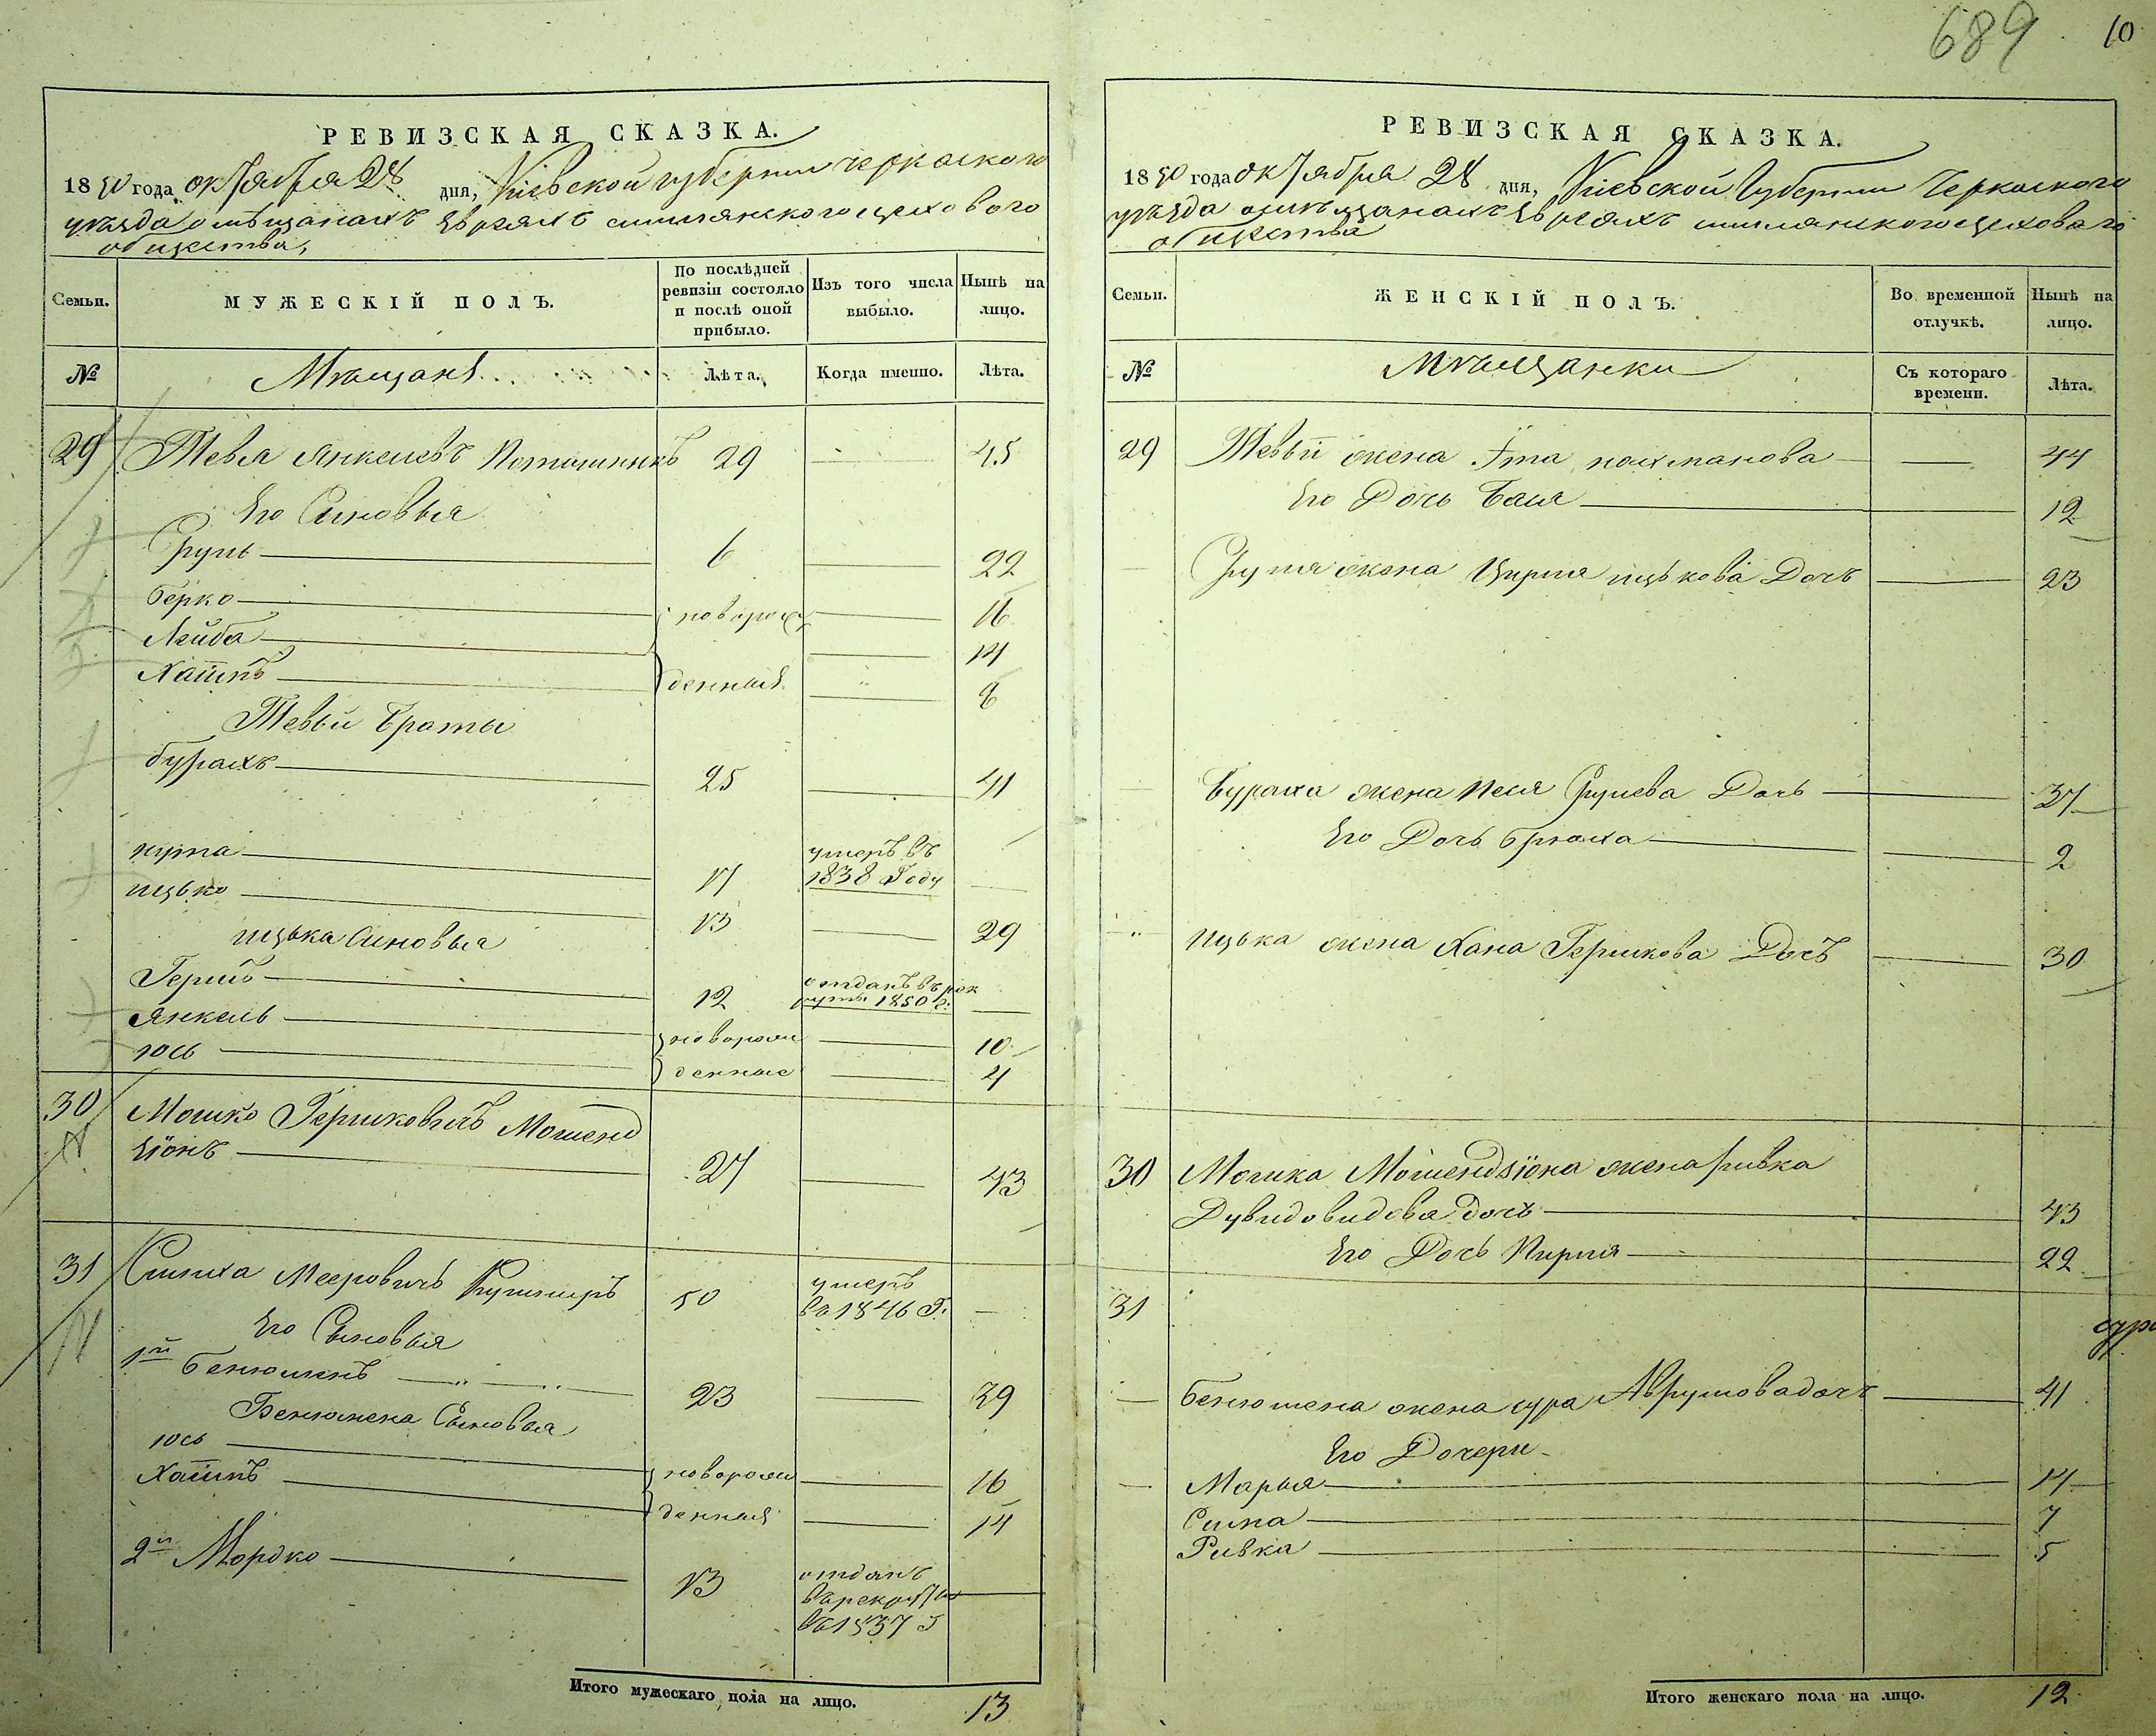 689 10
РЕВИЗСКАЯ СКАЗКА.
1850 года октября 28 дня, Кіевской губерніи черкаского
уѣзда о мѣщанахъ Евреяхъ смилянского цехового
общества,
Семьи.
МУЖЕСКІЙ ПОЛЪ.
По послѣдней ревизіи состояло и послѣ оной прибыло.
Изъ того числа выбыло.
Нынѣ на лицо.
№
Мѣщане
Лѣта.
Когда именно.
Лѣта.
29 Тевля Янкелевъ 29 — 45
Его Сыновья
Сруль — 6 — 22
Берко — новорож — 16
Лейба — — 14
Хаимъ — денныя — 8
Тевьи Браты
бурахъ — 25 — 41
нута — 17 умеръ въ 1838 Году —
ицько — 13 — 29
ицька Сыновья
Гершъ — 12 отданъ въ рекруты 1850 г. —
Янкель — новорож — 10
юсь — денные — 4
30 Мошко Гершковичъ Мошенд
зіонъ — 27 — 43
31 Симха Мееровичъ Кушниръ 50 умеръ въ 1846 Г. —
Его Сыновья
1й Бенюменъ — 23 — 39
Бенюмена Сыновья
юсь — новорож — 16
Хаимъ — денныя — 14
2й Мордко — 13 отданъ въ рекруты въ 1837 г —
Итого мужескаго пола на лицо. 13
РЕВИЗСКАЯ СКАЗКА.
1850 года октября 28 дня, Кіевской Губерніи Черкаского
уѣзда о мѣщанахъ Евреяхъ смилянского цеховаго
общества
Семьи.
ЖЕНСКІЙ ПОЛЪ.
Во временной отлучкѣ.
Нынѣ на лицо.
№
Мѣщанки
Съ котораго времени.
Лѣта.
29 Тевьи жена Ита нахманова — 44
Его Дочь Бася — 12
Сруля жена Цирля ицькова Дочь — 23
Бураха жена Песя Срулева Дочь — 37
Его Дочь Брюха — 2
ицька жена Хана Гершкова Дочь — 30
30 Мошка Мошендзіона жена ривка
Дувидовидова дочь — 43
Его Дочь Пирля — 22
31
Бенюмена жена сура Аврумова дочь — 41
Его Дочери
Марья — 14
Сима — 7
Ривка — 5
Итого женскаго пола на лицо. 12